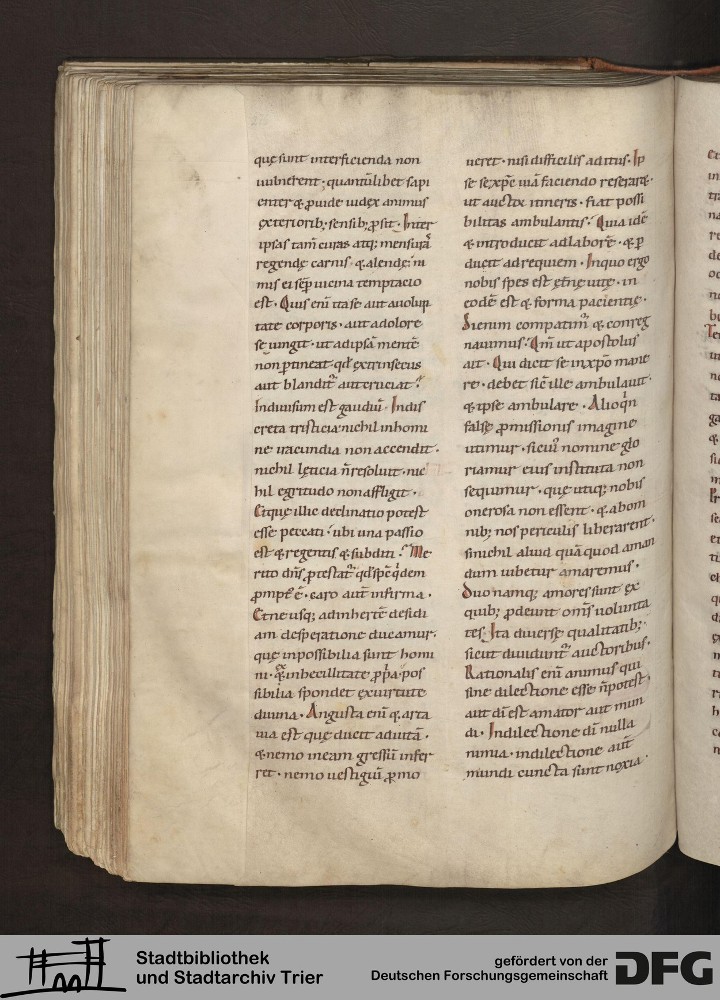 quę sunt interficienda non
uulnerent · quantũlibet sapi
enter & p̱uide iudex animus
exteriorib; sensib; p̱sit · Inter
ipsas tam̃ curas atq; mensurã
regendę carnis · & alendę · ni
mis ei sep̱ uicina temptacio
est · Quis enĩ ita se aut a uolup
tate corporis · aut a dolore
se iungit · ut ad ipsã mentẽ
non p̱tineat · qđ extrinsecus
aut blandit᷑ aut cruciat᷑
Indiuisum est gaudiũ · Indis
creta tristicia nichil in homi
ne iracundia non accendit ·
nichil lęticia ñ resoluit · nic
hil egritudo non affligit ·
Et quę illic declinatio potest
esse peccati · ubi una passio
est & regentis & subditi · Me
rito dñs p̱testat᷑ qđ sp̃c q̇dem
promptꝰ ẽ · caro aut̃ infirma ·
Et ne usq; ad inhertẽ desidi
am desperatione ducamur ·
que inpossibilia sunt homi
ni · inbecillitate p̱pa · pos
sibilia spondet ex uirtute
diuina · Angusta enĩ & arta
uia est quę ducit ad uitã ·
& nemo in eam gressũ infer
ret · nemo uestigiũ p̱mo
ueret · nisi difficilis aditus · Ip
se se xp̃c uiã faciendo reserar& ·
ut auctor itineris · fiat possi
bilitas ambulantis · Quia idẽ
& introducit ad laborẽ · & p̱
ducit ad requiem · In quo ergo
nobis spes est etp̃nę uitę · in
eodẽ est & forma pacientię ·
Si enim compatim᷑ & conreg
nauimus · Qm̃ ut apostolus
ait · Qui dicit se in xp̃o mane
re · debet sic̃ ille ambulauit ·
& ipse ambulare · Alioq̇n
falsę p̱missionis imagine
utimur · si cui᷒ nomine glo
riamur eius instituta non
sequimur · quę utiq; nobis
onerosa non essent · & ab om
nib; nos periculis liberarent ·
si nichil aliud quã quod aman
dum iubetur amaremus ·
Duo namq; amores sunt ex
quib; p̱deunt om̃s uolunta
tes · Ita diuersę qualitatib; ·
sicut diuidunt᷑ auctoribus ·
Rationalis enĩ animus qui
sine dilectione esse ñ potest ·
aut dĩ est amator aut mun
di · In dilectione dĩ nulla
nimia · in dilectione aut̃
mundi cuncta sunt noxia ·
Stadtbibliothek
und Stadtarchiv Trier
gefördert von der
Deutschen Forschungsgemeinschaft
DFG